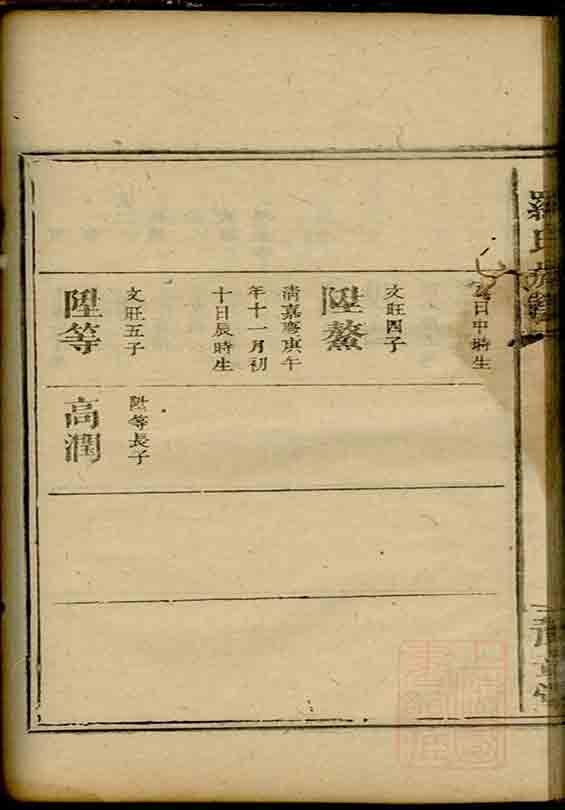 羅氏族譜
日申時生
陞鰲
文旺四子
清嘉慶庚午
年十一月初
十日辰時生
陞等
文旺五子
高潤
陞等長子